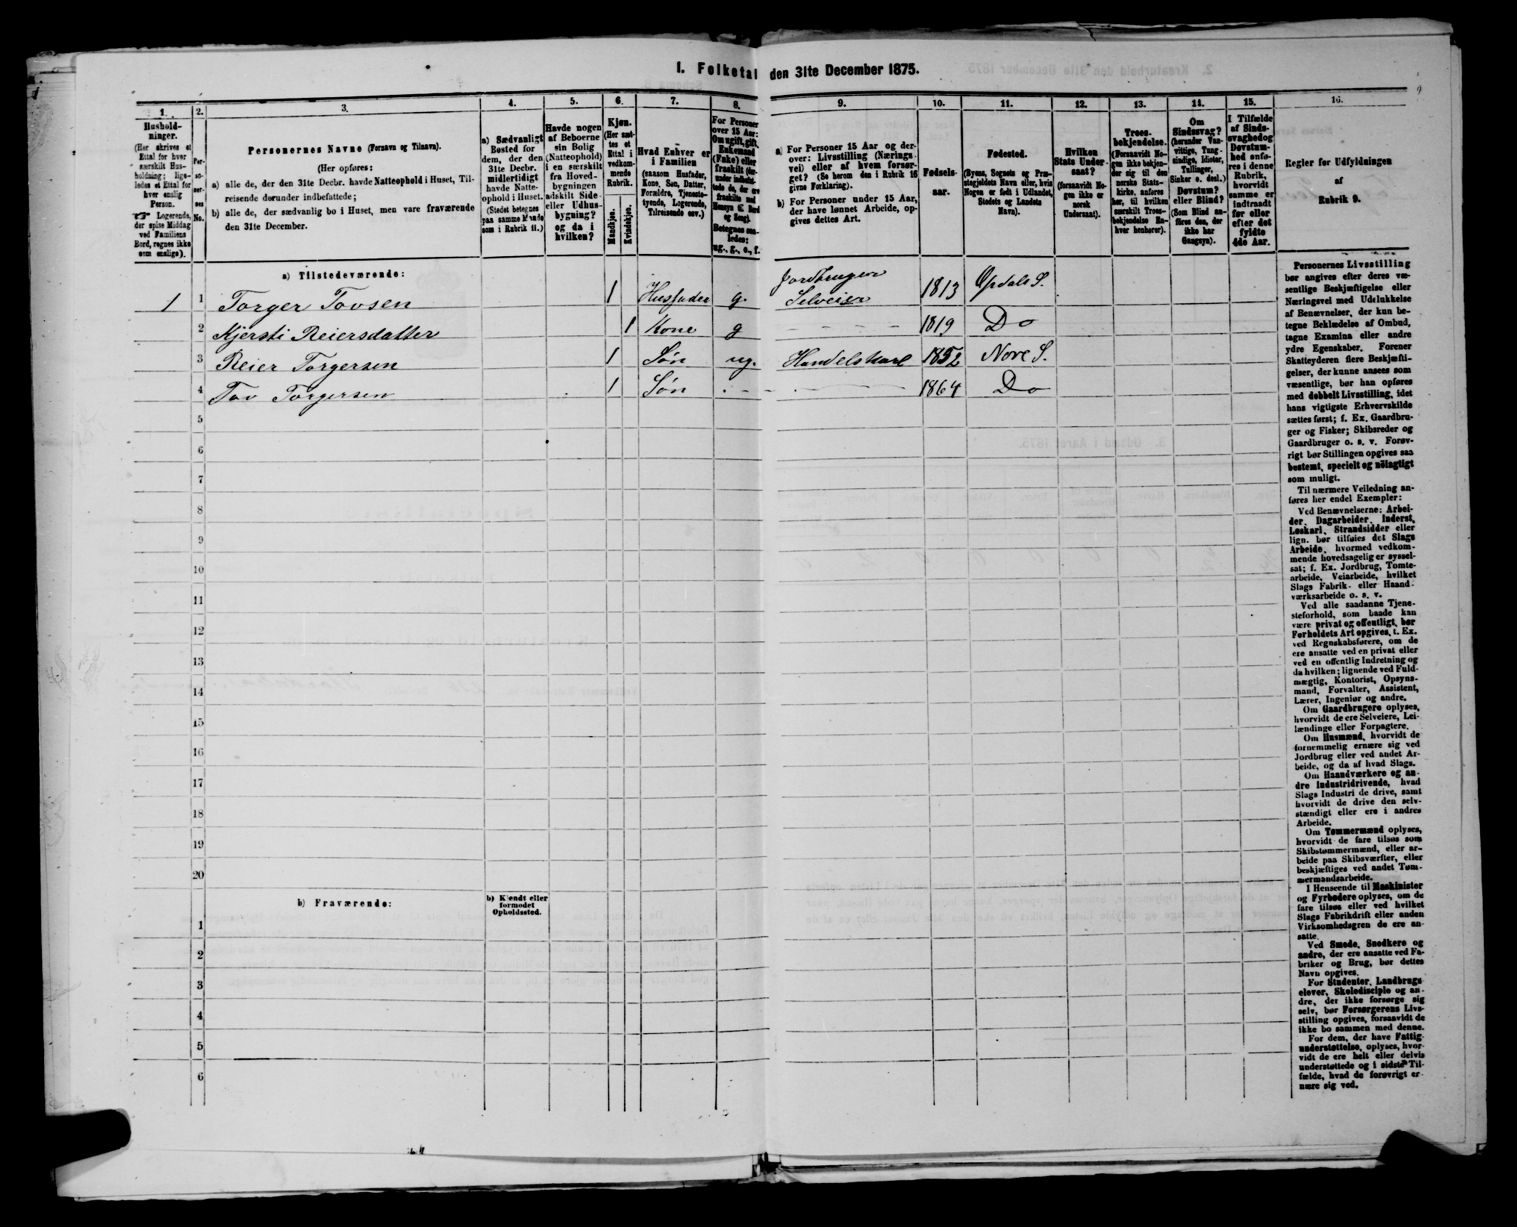 1. Folketal den 31te December 1875.
1. 2. 3. 4. 5. 6. 7. 8. 9. 10. 11. 12. 13. 14. 15. 16.
Hushold-
ninger.
(Her skrives et
Ettal for hver
særskilt Hus-
holdning; lige-
ledes et Ettal for
hver enslig
Person.
Logerende,
der spise Middag
ved Familiens
Bord, regnes ikke
som enslige).
Per-
soner-
nes
No.
Personernes Navne (Fornavn og Tilnavn).
(Her opføres:
a) alle de, der den 31te Decbr. havde Natteophold i Huset, Til-
reisende derunder indbefattede;
b) alle de, der sædvanlig bo i Huset, men vare fraværende
den 31te December.
a) Sædvanligt
Bosted for
dem, der den
31te Decbr.
midlertidigt
havde Natte-
ophold i Huset.
(Stedet betegnes
paa samme Maade
som i Rubrik 11.)
Havde nogen
af Beboerne
sin Bolig
(Natteophold)
i en særskilt
fra Hoved-
bygningen
adskilt Side-
eller Udhus-
bygning?
og da i
hvilken?
Kjøn.
(Her sæt-
tes et
Ettal i
vedkom-
mende
Rubrik.
Mandkjøn.
Kvindekjøn.
Hvad Enhver er
i Familien
(saasom Husfader,
Kone, Søn, Datter,
Forældre, Tjeneste-
tyende, Logerende,
Tilreisende osv.)
For Personer
over 15 Aar:
Om ugift, gift,
Enkemand
(Enke) eller
fraskilt
Betegnes saa-
ledes:
ug., g., e., f.
a) For Personer 15 Aar og der-
over: Livsstilling (Nærings-
vei) eller af hvem forsør-
get? (Se herom den i Rubrik 16
givne Forklaring).
b) For Personer under 15 Aar,
der have lønnet Arbeide, op-
gives dettes Art.
Fødsels-
aar.
Fødested.
(Byens, Sognets og Præ-
stegjeldets Navn eller, hvis
Nogen er født i Udlandet,
Stedets og Landets
Navn).
Hvilken
Stats Under-
saat?
(forsaavidt No-
gen ikke er
norsk
Undersaat).
Troes-
bekjendelse.
(Forsaavidt No-
gen ikke bekjen-
der sig til den
norske Stats-
kirke, anføres
her, til hvilken
særskilt Troes-
bekjendelse En-
hver henhører).
Om
Sindssvag?
(herunder Van-
vittige, Tung-
sindige, Idioter,
Tullinger,
Sinker o. desl.)
Døvstum?
eller Blind?
(Som Blind an-
føres den, der
ikke har
Gangsyn).
I Tilfælde
af Sinds-
svaghed og
Døvstum-
hed anfø-
res i denne
Rubrik,
hvorvidt
samme er
indtraadt
før eller
efter det
fyldte
4de Aar.
Regler for Udfyldningen
af
Rubrik 9.
a) Tilstedeværende:
1 1 Torger Tovsen 1 Husfader g. Jordbruger Selveier 1813 Opdals S.
2 Kjersti Reiersdatter 1 Kone g - - - - 1819 Do
3 Reier Torgersen 1 Søn ug. Handelskarl 1852 Nore S.
4 Tov Torgersen 1 Søn - - 1864 Do
5
6
7
8
9
10
11
12
13
14
15
16
17
18
19
20
b) Fraværende:
b) Kjendt eller
formodet
Opholdssted.
1
2
3
4
5
6
Personernes Livsstilling
bør angives efter deres væ-
sentlige Beskjæftigelse eller
Næringsvei med Udelukkelse
af Benævnelser, der kun be-
tegne Beklædelse af Ombud,
tagne Examina eller andre
ydre Egenskaber. Forener
Skatteyderen flere Beskjæfti-
gelser, der kunne ansees som
væsentlige, bør han opføres
med dobbelt Livsstilling, idet
hans vigtigste Erhvervskilde
sættes først; f. Ex. Gaardbru-
ger og Fisker; Skibsreder og
Gaardbruger o. s. v. Forøv-
rigt bør Stillingen opgives saa
bestemt, specielt og nöiagtigt
som muligt.
Til nærmere Veiledning an-
føres her endel Exempler:
Ved Benævnelserne: Arbei-
der, Dagarbeider, Inderst,
Løskarl, Strandsidder eller
lign. bør tilføies det Slags
Arbeide, hvormed vedkom-
mende hovedsagelig er syssel-
sat; f. Ex. Jordbrug, Tomte-
arbeide, Veiarbeide, hvilket
Slags Fabrik- eller Haand-
værksarbeide o. s. v.
Ved alle saadanne Tjene-
steforhold, som baade kan
være privat og offentligt, bør
Forholdets Art opgives, t. Ex.
ved Regnskabsførere, om de
ere ansatte ved en privat eller
ved en offentlig Indretning og
da hvilken; lignende ved Fuld-
mægtig, Kontorist, Opsyns-
mand, Forvalter, Assistent,
Lærer, Ingeniør og andre.
Om Gaardbrugere oplyses,
hvorvidt de ere Selveiere, Lei-
lændinge eller Forpagtere.
Om Husmænd, hvorvidt de
fornemmelig ernære sig ved
Jordbrug eller ved andet Ar-
beide, og da af hvad Slags.
Om Haandværkere og an-
dre Industridrivende, hvad
Slags Industri de drive, samt
hvorvidt de drive den selv-
stændigt eller ere i andres
Arbeide.
Om Tømmermænd oplyses,
hvorvidt de fare tilsøs som
Skibstømmermænd, eller ar-
beide paa Skibsværfter, eller
beskjæftiges ved andet Tøm-
mermandsarbeide.
I Henseende til Maskinister
og Fyrbødere oplyses, om de
fare tilsøs eller ved hvilket
Slags Fabrikdrift eller anden
Virksomhedsgren de ere an-
satte.
Ved Smede, Snedkere og
andre, der ere ansatte ved Fa-
briker og Brug, bør dettes
Navn opgives.
For Studenter, Landbrugs-
elever, Skoledisciple og an-
dre, der ikke forsørge sig
selv, bør Forsørgerens Livs-
stilling opgives, forsaavidt de
ikke bo sammen med denne.
For dem, der have Fattig-
understøttelse, oplyses, hvor-
vidt de ere helt eller delvis
understøttede og i sidste Til-
fælde, hvad de forøvrigt er-
nære sig ved.